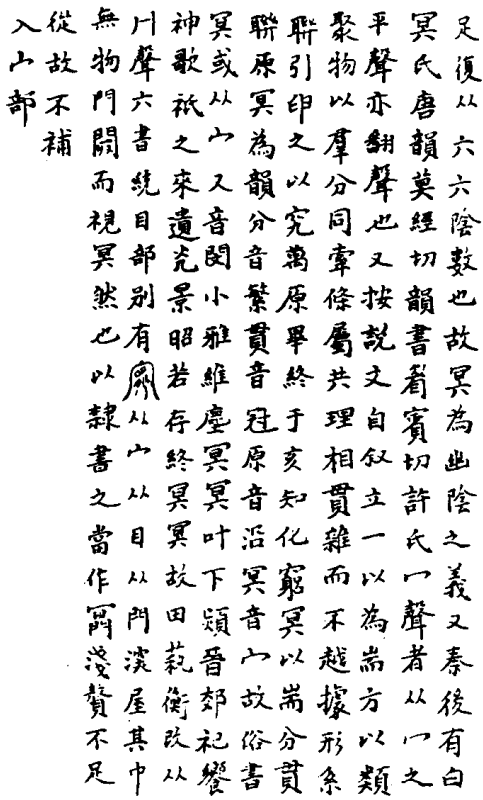 足復从六六陰數也故冥為幽陰之義又秦後有白
冥氏唐韻莫經切韻書眉賓切許氏冖聲者从冖之
平聲亦翻聲也又按說文自叙立一以為耑方以類
聚物以羣分同牽條屬共理相貫雜而不越據形系
聯引印之以究萬原畢終于亥知化窮冥以耑分貫
聯原冥為韻分音繁貫音冠原音沿冥音宀故俗書
冥或从宀又音閔小雅維塵冥冥叶下熲晉郊祀饗
神歌祇之來遺光景昭若存終冥冥故田藝衡改从
冂聲六書統目部別有从宀从目从門深屋其中
無物門而視冥然也以隸書之當作淺贅不足
從故不補
入宀部